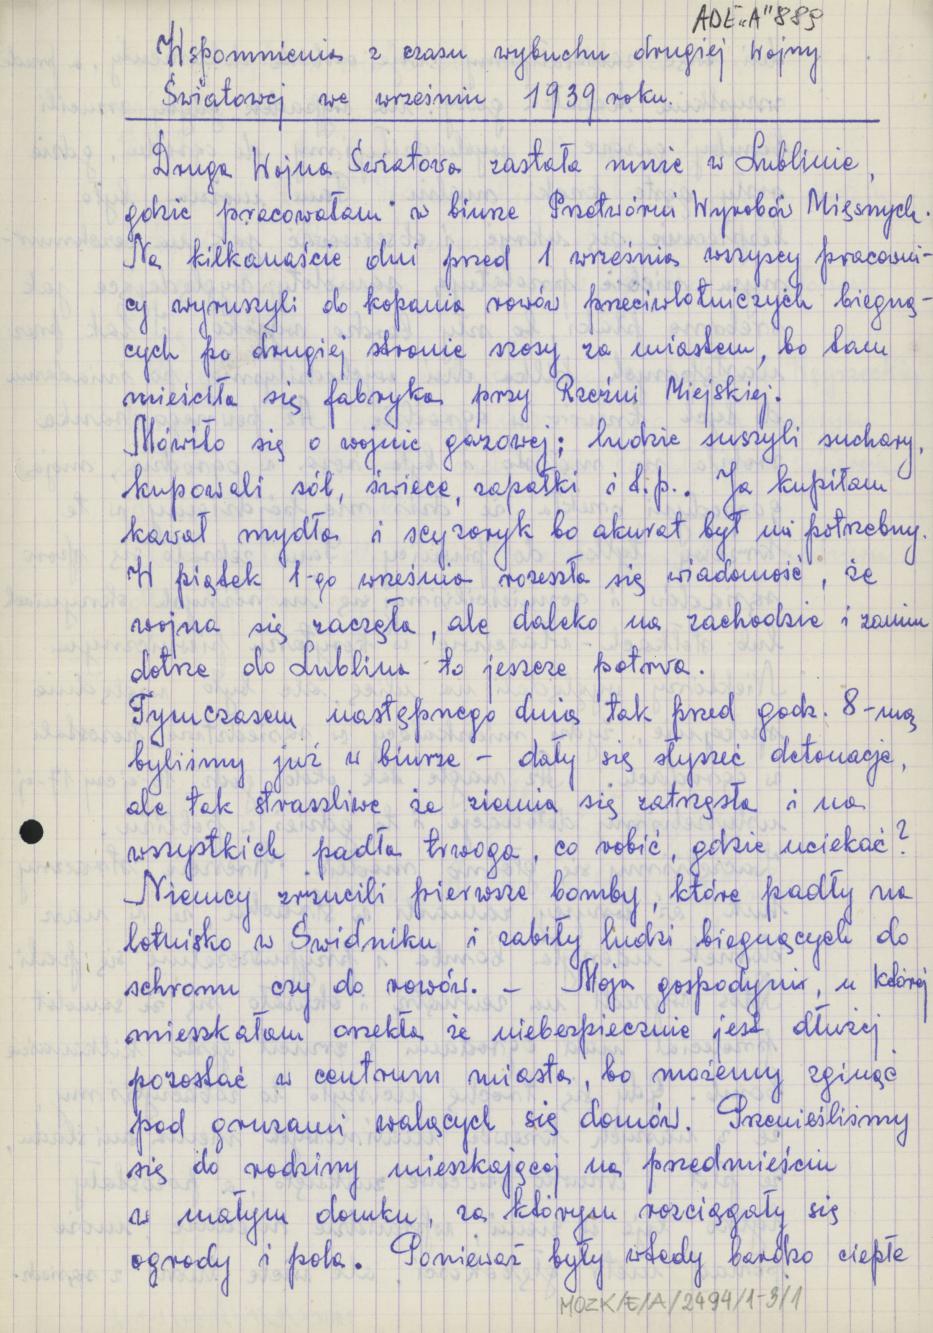 ADE „A" 889
Wspomnienia z czasu wybuchu drugiej Wojny
Światowej we wrześniu 1939 roku.
Druga Wojna Światowa zastała mnie w Lublinie,
gdzie pracowałam w biurze Przetwórni Wyrobów Mięsnych.
Na kilkanaście dni przed 1 września wszyscy pracowni-
cy wyruszyli do kopania rowów przeciwlotniczych biegną-
cych po drugiej stronie szosy za miastem, bo tam
mieściła się fabryka przy Rzeźni Miejskiej.
Mówiło się o wojnie gazowej; ludzie suszyli suchary,
kupowali sól, świece, zapałki i t.p.. Ja kupiłam
kawał mydła i scyzoryk bo akurat był mi potrzebny.
W piątek 1-go września rozeszła się wiadomość, że
wojna się zaczęła, ale daleko na zachodzie i zanim
dotrze do Lublina to jeszcze potrwa.
Tymczasem następnego dnia tak przed godz. 8-mą
byliśmy już w biurze – dały się słyszeć detonacje,
ale tak straszliwe że ziemia się zatrzęsła i na
wszystkich padła trwoga, co robić, gdzie uciekać?
Niemcy zrzucili pierwsze bomby, które padły na
lotnisko w Świdniku i zabiły ludzi biegnących do
schronu czy do rowów. – Moja gospodyni, u której
mieszkałam orzekła że niebezpiecznie jest dłużej
pozostać w centrum miasta, bo możemy zginąć
pod gruzami walących się domów. Przenieśliśmy
się do rodziny mieszkającej na przedmieściu
w małym domku, za którym rozciągały się
ogrody i pola. Ponieważ były wtedy bardzo ciepłe
MOZK/E/A/2494/1-3/1